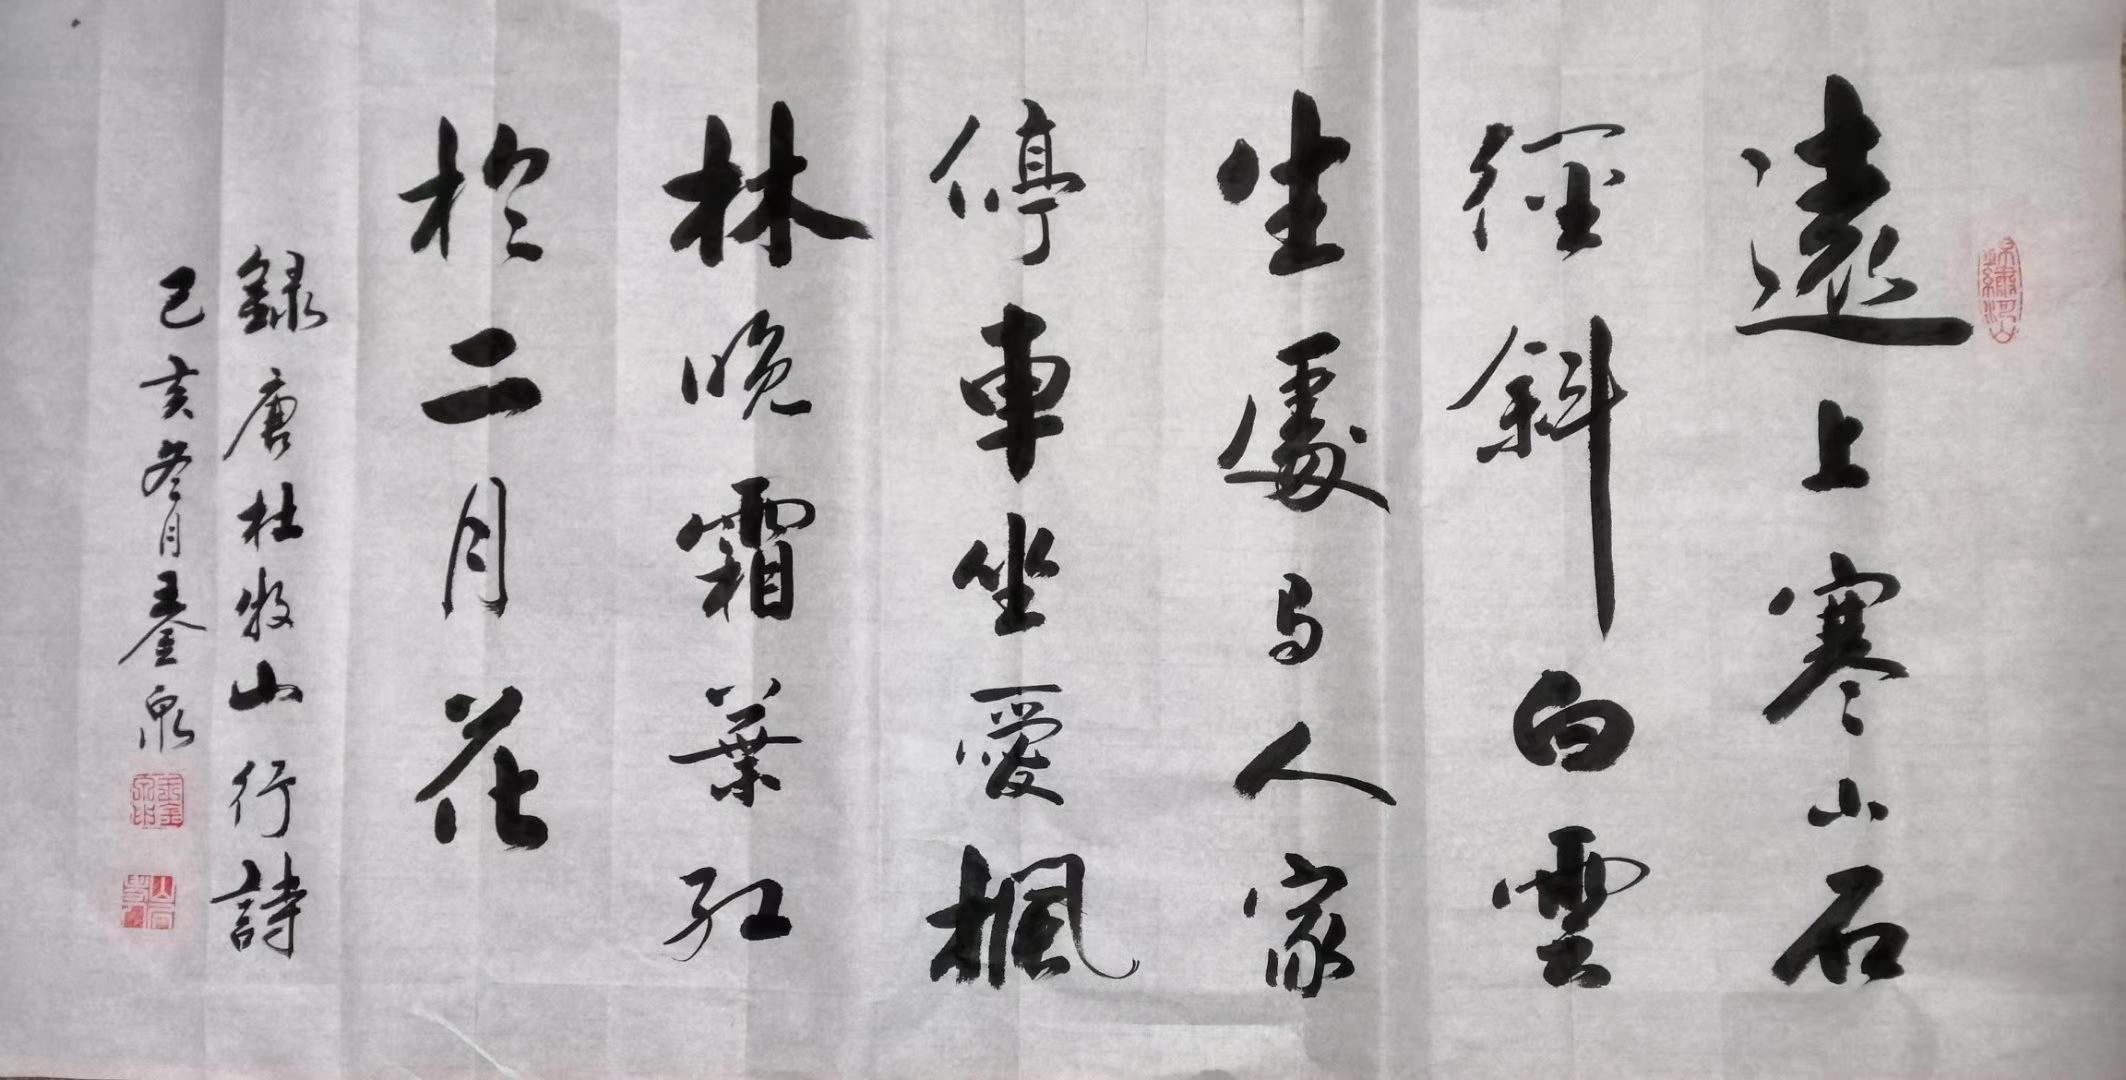 遠上寒山石
徑斜白雲
生處与人家
停車坐愛楓
林晚霜葉紅
於二月花
錄唐杜牧山行詩
己亥冬月王鑫泉
錦繡河山